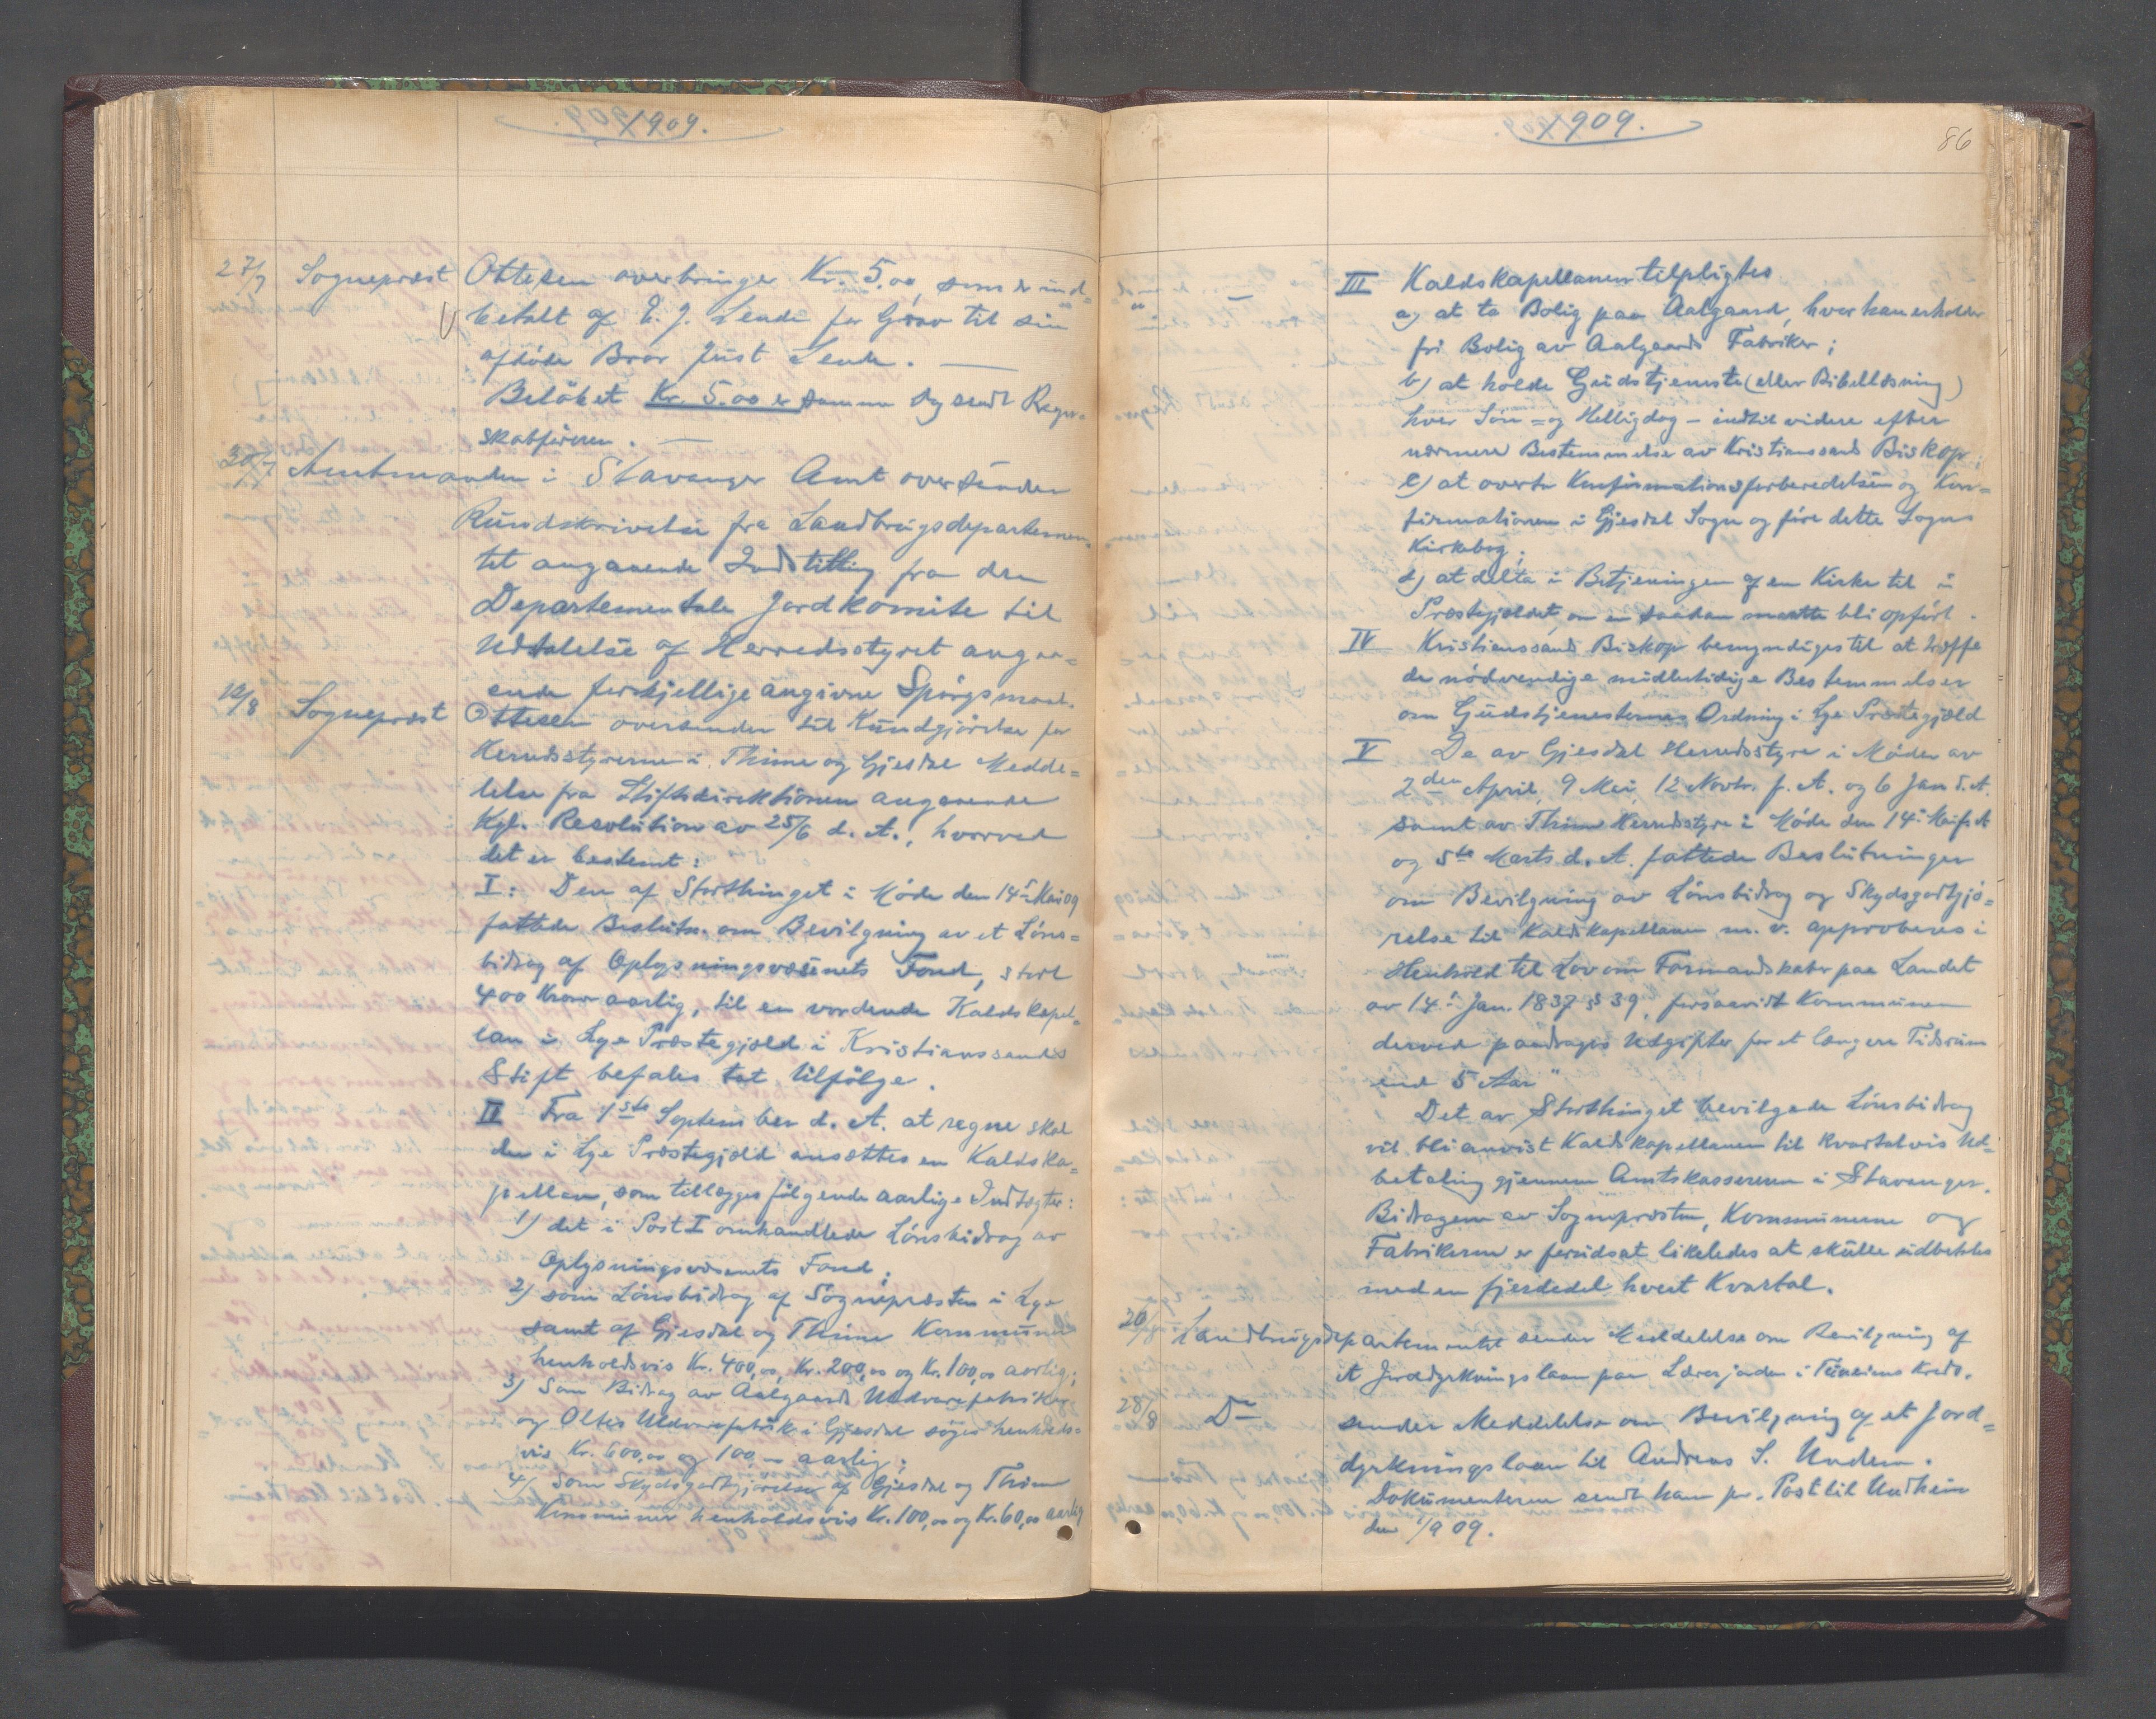 1909.
27/7 Sogneprest Ottesen overbringer Kr. 5.00, som er ind=
betalt af E. J. Lende for Grav til sin
afdøde Bror Just Lende. —
Beløbet Kr. 5.00 er samme Dag sendt Regn-
skabsføreren. —
30/7 Amtmanden i Stavanger Amt oversender
Rundskrivelse fra Landbrugsdepartemen-
tet angaaende Indstilling fra den
Departementale Jordkomite til
Udtalelse af Herredsstyret angaa=
ende forskjellige angivne Spørgsmaal.
12/8 Sogneprest Ottesen oversender til Kundgjørelse for
Herredsstyrerne i Thime og Gjesdal Medde=
lelse fra Stiftsdirektionen angaaende
Kgl. Resolution av 25/6 d. A., hvorved
det er bestemt:
I: Den af Storthinget i Møde den 14de Mai 09
fattede Beslutn. om Bevilgning av et Løns=
bidrag af Oplysningsvæsenets Fond, stort
400 Kroner aarlig, til en vordende Kaldskapel-
lan i Lye Præstegjæld i Kristianssands
Stift befales tat tilfølge.
II Fra 1ste September d. A. at regne skal
der i Lye Præstegjæld ansættes en Kaldska=
pellan, som tillægges følgende aarlige Indtægter:
1) det i Post I omhandlede Lønsbidrag av
Oplysningsvæsenets Fond;
2) som Lønsbidrag af Sognepræsten i Lye
samt af Gjesdal og Thime Kommuner
henholdsvis Kr. 400,00, Kr. 200,00 og Kr. 100,00 aarlig;
3) Som Bidrag av Aalgaards Uldvarefabriker
og Oltes Uldvarefabrik i Gjesdal sogn henholds=
vis Kr. 600,00 og 100,00 aarlig;
4) Som Skydsgodtgjørelse af Gjesdal og Thime
Kommuner henholdsvis Kr. 100,00 og Kr. 60,00 aarlig
1909.
86
III Kaldskapellanen tilpligtes
a) at ta Bolig paa Aalgaard, hvor han erholder
fri Bolig av Aalgaards Fabriker;
b) at holde Gudstjeneste (eller Bibellæsning)
hver Søn= og Helligdag – indtil videre efter
nærmere Bestemmelse av Kristianssands Biskop;
c) at overta Konfirmationsforberedelsen og Kon=
firmationen i Gjesdal Sogn og føre dette Sogns
Kirkebog;
d) at delta i Betjeningen af en Kirke til i
Præstegjældet, om en saadan maatte bli opført.
IV Kristianssands Biskop bemyndiges til at træffe
de nødvendige midlertidige Bestemmelser
om Gudstjenesternes Ordning i Lye Præstegjæld
V De av Gjesdal Herredsstyre i Møder av
2den April, 9 Mai, 12 Novbr. f. A. og 6 Jan d. A.
samt av Thime Herredsstyre i Møde den 14de Mai f. A
og 5te Marts d. A. fattede Beslutninger
om Bevilgning av Lønsbidrag og Skydsgodtgjø=
relse til Kaldskapellanen m. v. approberes i
Henhold til Lov om Formandskaber paa Landet
av 14de Jan. 1837 § 39, forsaavidt Kommunen
derved paadrages Udgifter for et længere Tidsrum
end 5 Aar"
Det av Storthinget bevilgede Lønsbidrag
vil bli anvist Kaldskapellanen til kvartalvis Ud=
betaling gjennem Amtskassereren i Stavanger.
Bidragene av Sognepræsten, Kommunerne og
Fabrikerne er forudsat likeledes at skulle udbetales
med en fjerdedel hvert Kvartal.
26/8 Landbrugsdepartementet sender Meddelelse om Bevilgning af
et Jorddyrkningslaan paa Lærerjorden i Tunheims Kreds.
28/8 Do sender Meddelelse om Bevilgning af et Jord=
dyrkningslaan til Andreas S. Undem.
Dokumenterne sendt ham pr. Post til Undheim
den 1/9 09.